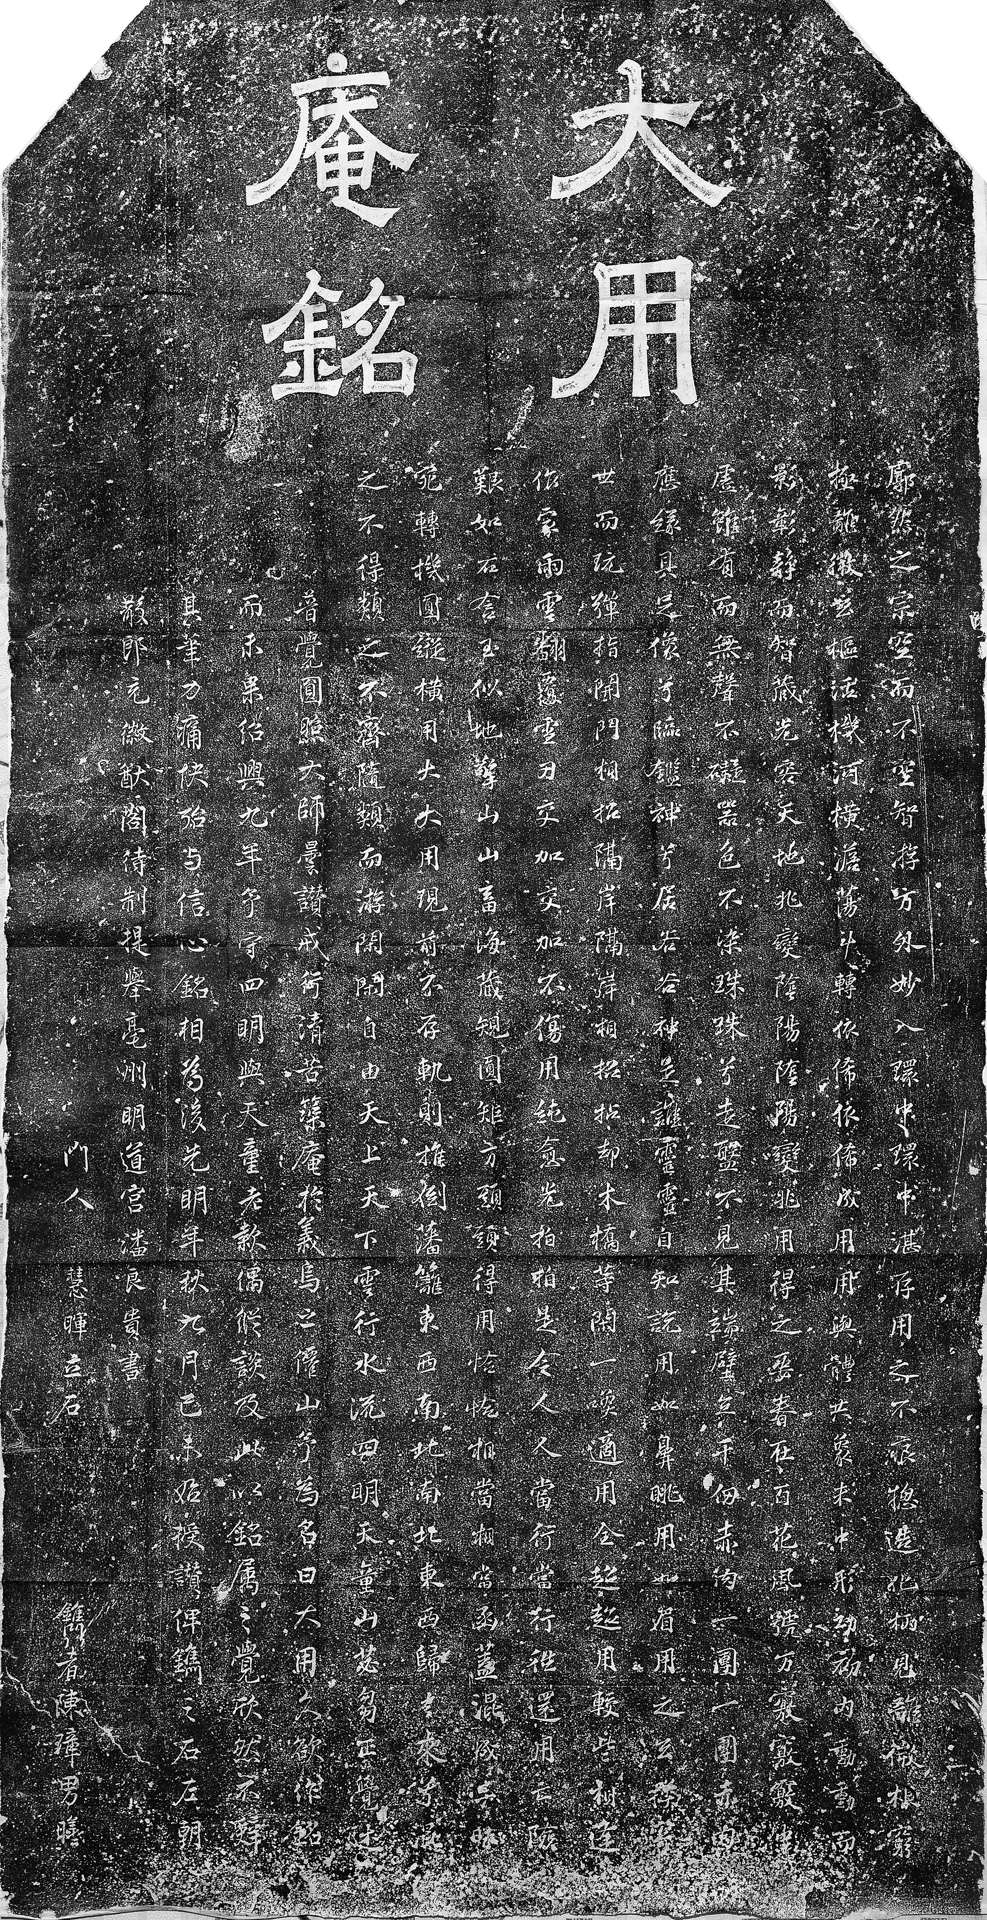 大用
庵銘
廓然之宗空而不空智游方外妙入環中環中湛存用之不痕揔造化柄見離微根窮
極離微玄樞活機河横澹蕩斗轉依俙依俙成用用與體共象未中形動初内動動而
影彰静而智蔵光容天地兆變陰陽陰陽變兆用得之要春在百花風號万竅竅竅
虛雖有而無聲不礙器色不染珠珠兮走盤不見其端壁立千仞赤肉一團一團赤肉
應緣具足像兮臨鑑神兮居谷谷神是誰靈靈自知説用如鼻眺用如眉用之
世而玩彈指開門相招隔岸隔岸相招拈却木橋等閑一喚適用全超超用較些相逢
作家雨雲翻覆雪刃交加交加不傷用純愈光拍拍是令人人當行當行徃還用亡險
艱如石含玉似地擎山山畜海蔵規圓矩方頭頭得用恰恰相當相當函蓋混成
宛轉機圓縱横用大大用現前不存軌則推倒藩籬東西南北南北東西歸去來兮
之不得類之不齊隨類而游閑閑自由天上天下雲行水流四明天童山苾芻正覺述
普覺圓照大師曇讃戒行清苦築庵扵義烏之僊山予為名曰大用久欲作銘
而未果紹興九年予守四明與天童老款偶縱談及此以銘属之覺欣然不辭
其筆力痛快殆与信心銘相為後先明年秋九月己未始授讃俾鐫之石左朝
散郎充徽猷閣待制提舉亳州明道宫潘良貴書
門人慧暉立石鐫者陳璋男曦